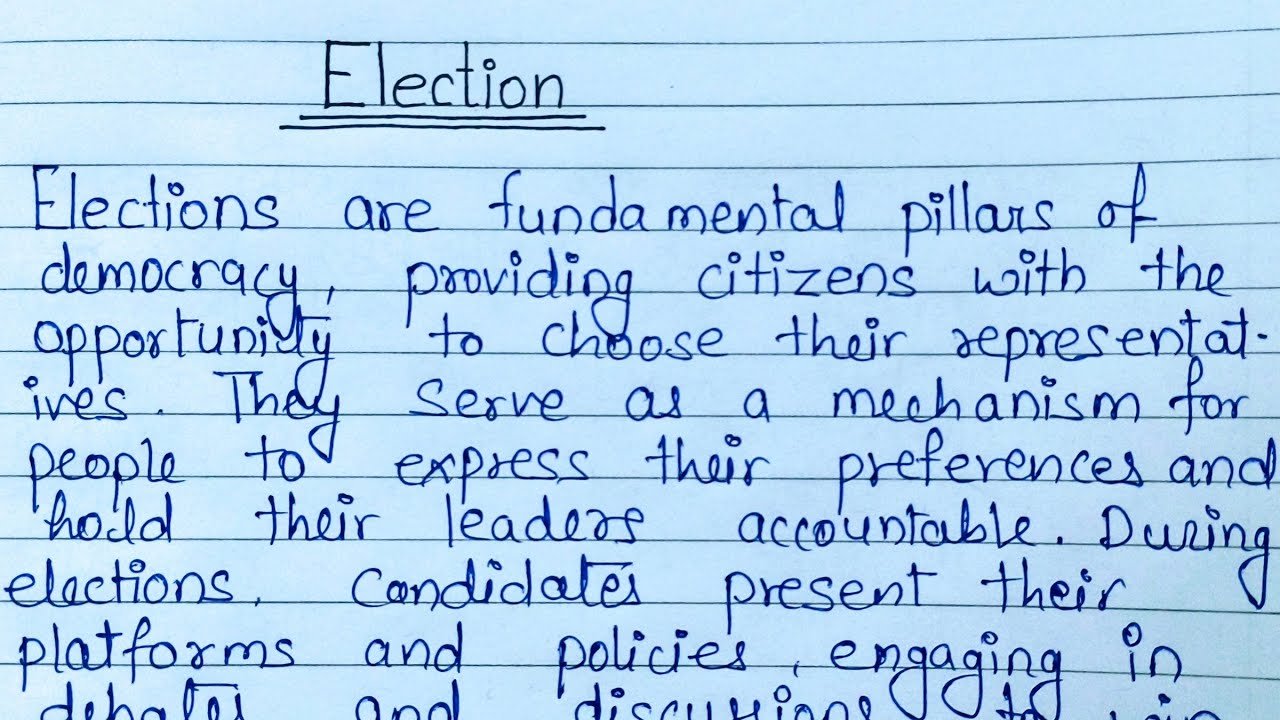 Election
Elections are fundamental pillars of
democracy, providing citizens with the
opportunity to choose their representat-
ives. They serve as a mechanism for
people to express their preferences and
hold their leaders accountable. During
elections, candidates present their
platforms and policies, engaging in
debates and discussions to win